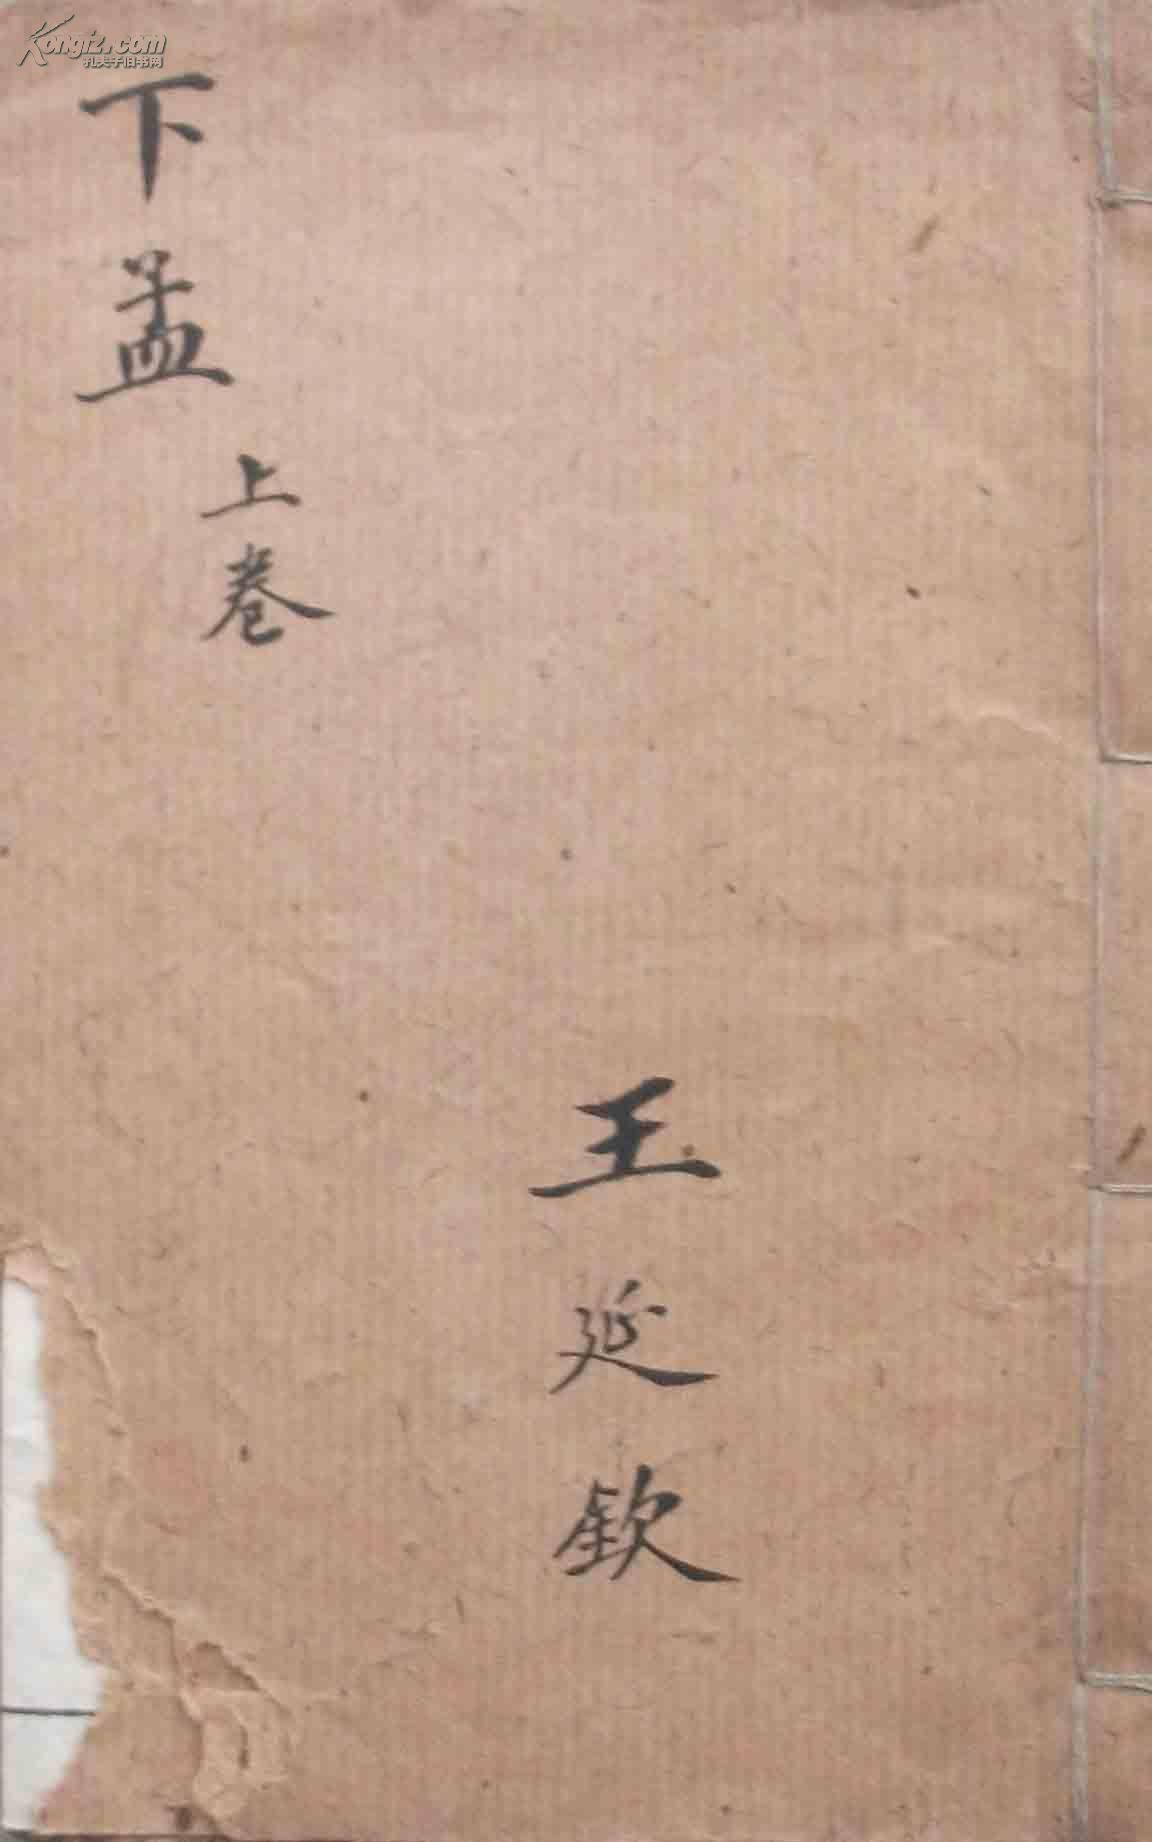 Kongfz.com
孔夫子旧书网
下孟
上卷
王延欽